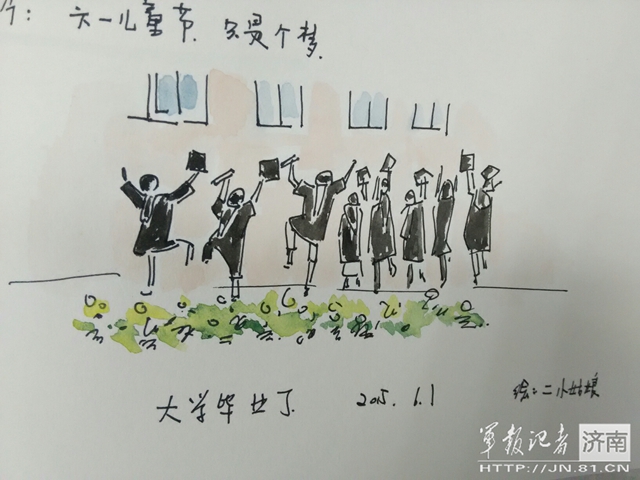 六一儿童节 个梦
大学毕业了 2015.6.1 绘：二小姑娘
軍報记者 济南
HTTP://JN.81.CN